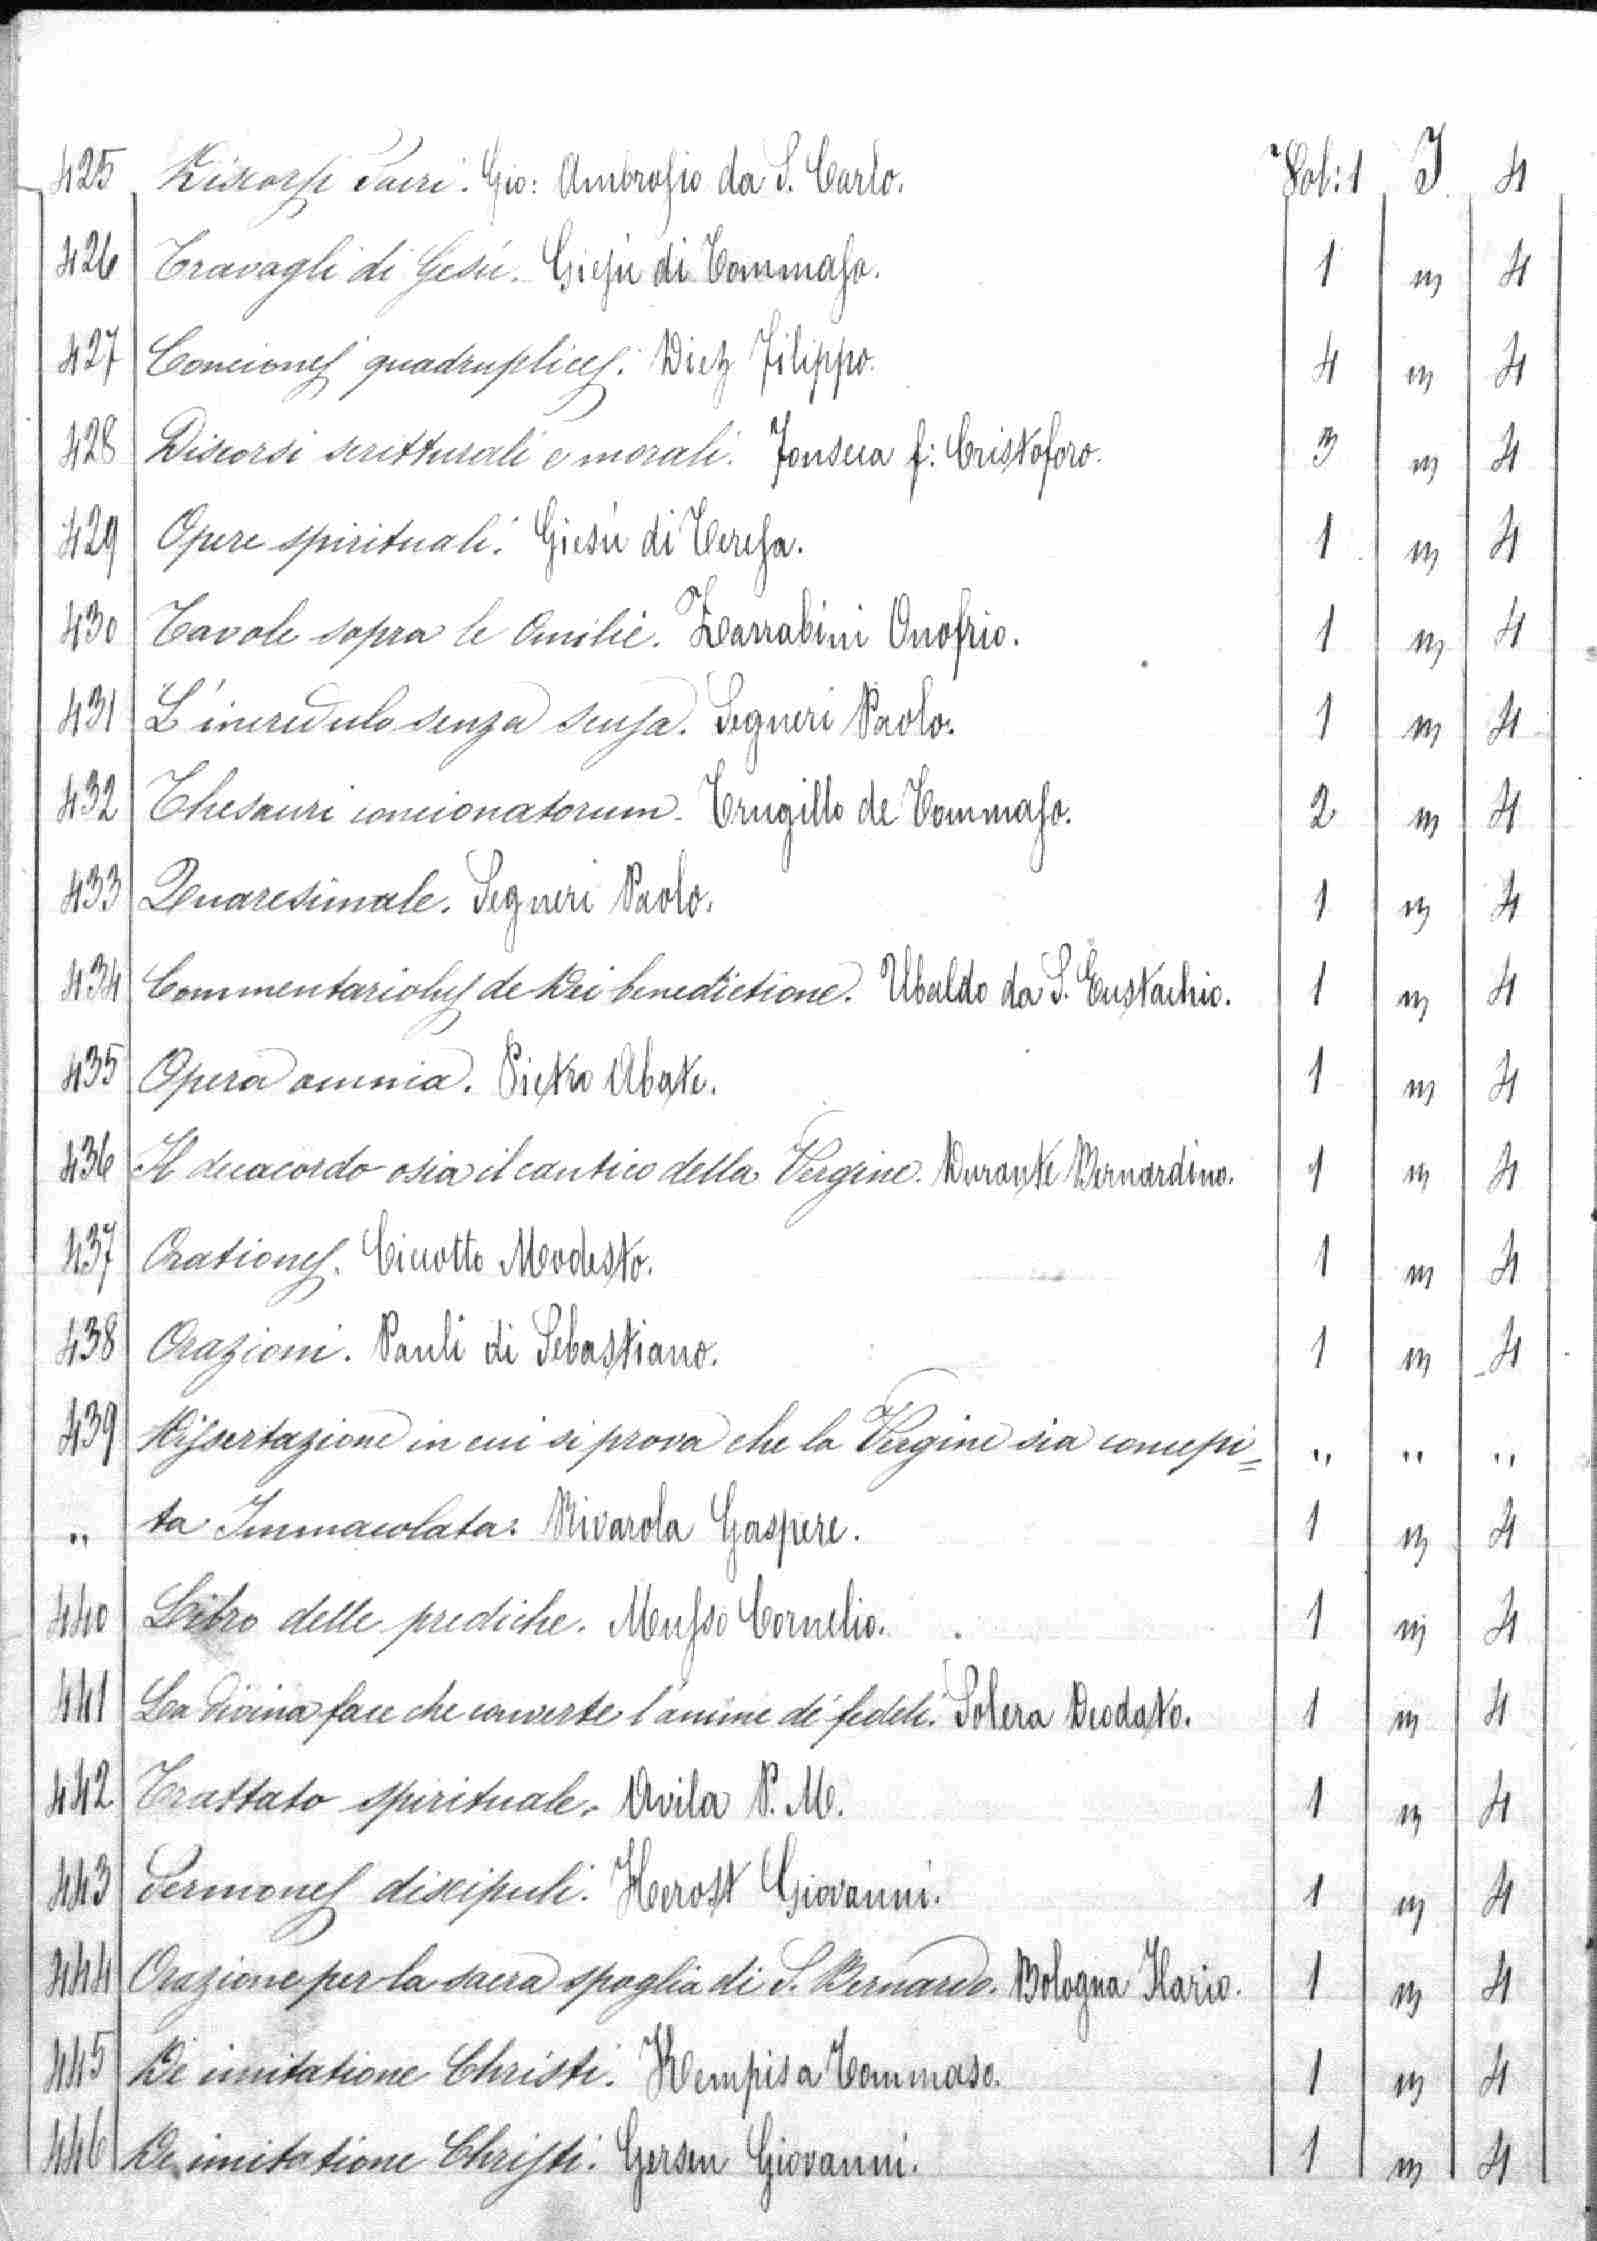 425 Discorsi Sacri. Gio: Ambrosio da S. Carlo. Vol: 1 I 4
426 Travagli di Gesù. Giesù di Tommaso. 1 m 4
427 Conciones quadruplices. Diez Filippo. 4 m 4
428 Discorsi scritturali e morali. Fonseca f: Cristoforo. 3 m 4
429 Opere spirituali. Giesù di Teresa. 1 m 4
430 Tavole sopra le Omilie. Zarrabini Onofrio. 1 m 4
431 L'incredulo senza scusa. Segneri Paolo. 1 m 4
432 Thesauri concionatorum. Trugillo de Tommaso. 2 m 4
433 Quaresimale. Segneri Paolo. 1 m 4
434 Commentariolus de Dei benedictione. Ubaldo da S. Eustachio. 1 m 4
435 Opera omnia. Pietro Abate. 1 m 4
436 Il decacordo osia il cantico della Vergine. Durante Bernardino. 1 m 4
437 Orationes. Ciccotto Modesto. 1 m 4
438 Orazioni. Pauli di Sebastiano. 1 m 4
439 Dissertazione in cui si prova che la Vergine sia concepi= " " "
" ta Immacolata. Rivarola Gaspere. 1 m 4
440 Libro delle prediche. Musso Cornelio. 1 m 4
441 La divina face che converte l'anime de' fedeli. Solera Deodato. 1 m 4
442 Trattato spirituale. Avila P. M. 1 m 4
443 Sermones discipuli. Herost Giovanni. 1 m 4
444 Orazione per la sacra spoglia di S. Bernardo. Bologna Ilario. 1 m 4
445 De imitatione Christi. Kempis a Tommaso. 1 m 4
446 De imitatione Christi. Gersen Giovanni. 1 m 4